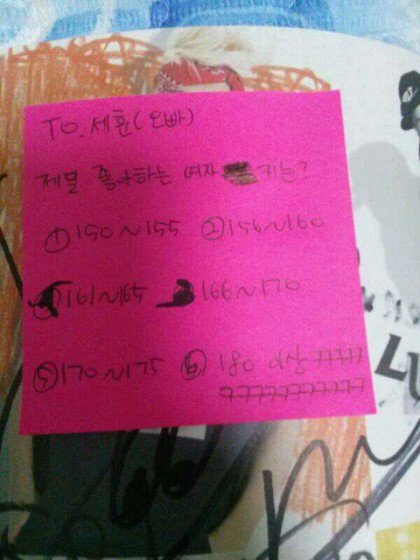 TO. 세훈(오빠)
제일 좋아하는 여자 키는?
① 150~155 ② 156~160
161~165 166~170
⑤ 170~175 ⑥ 180 이상 ㅋㅋㅋㅋㅋ
ㅋㅋㅋㅋㅋㅋㅋㅋㅋㅋ